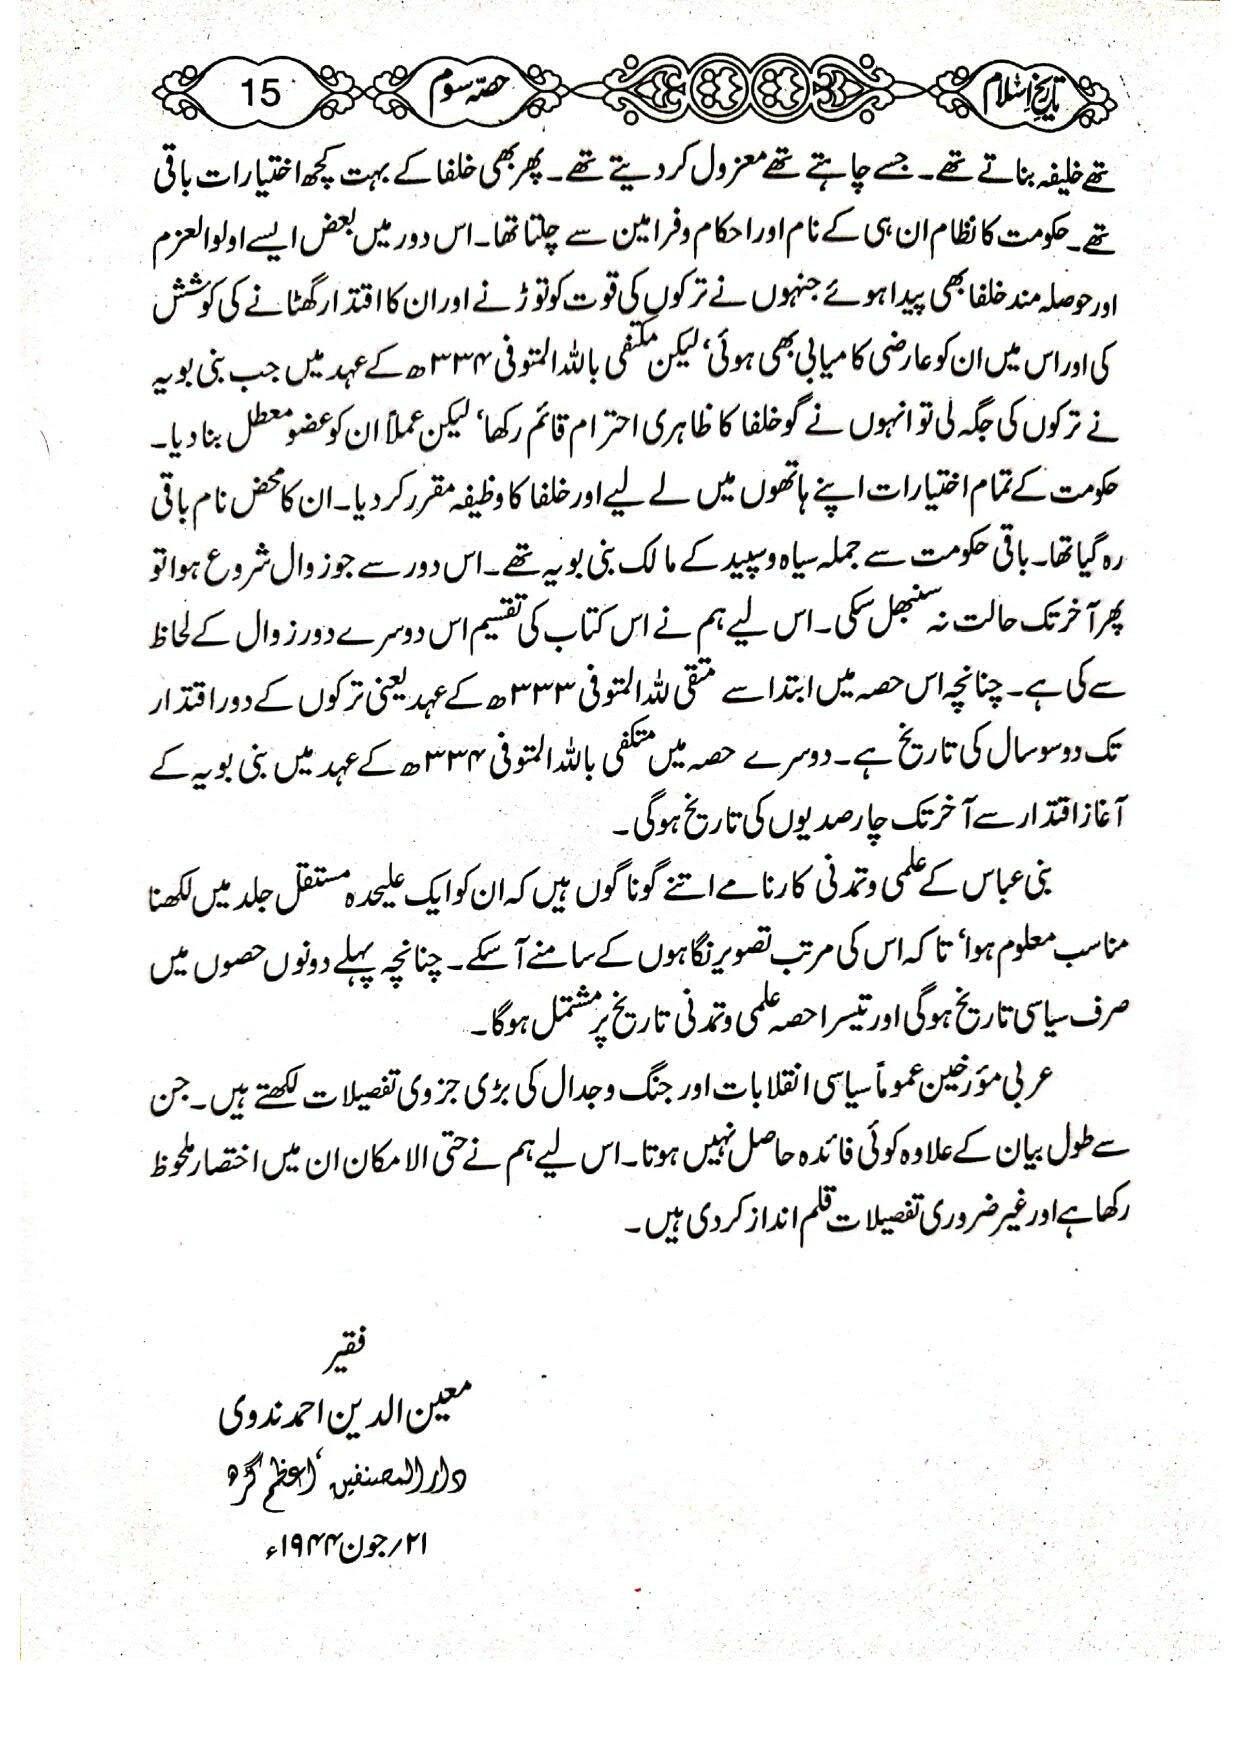 تاریخ اسلام حصہ سوم 15
تھے خلیفہ بناتے تھے۔ جسے چاہتے تھے معزول کر دیتے تھے۔ پھر بھی خلفا کے بہت کچھ اختیارات باقی
تھے۔ حکومت کا نظام ان ہی کے نام اور احکام و فرامین سے چلتا تھا۔ اس دور میں بعض ایسے اولوالعزم
اور حوصلہ مند خلفا بھی پیدا ہوئے جنہوں نے ترکوں کی قوت کو توڑنے اور ان کا اقتدار گھٹانے کی کوشش
کی اور اس میں ان کو عارضی کامیابی بھی ہوئی‘ لیکن مکتفی باللہ المتوفی ۳۳۴ھ کے عہد میں جب بنی بویہ
نے ترکوں کی جگہ لی تو انہوں نے گو خلفا کا ظاہری احترام قائم رکھا‘ لیکن عملاً ان کو عضو معطل بنا دیا۔
حکومت کے تمام اختیارات اپنے ہاتھوں میں لے لیے اور خلفا کا وظیفہ مقرر کر دیا۔ ان کا محض نام باقی
رہ گیا تھا۔ باقی حکومت سے جملہ سیاہ و سپید کے مالک بنی بویہ تھے۔ اس دور سے جو زوال شروع ہوا تو
پھر آخر تک حالت نہ سنبھل سکی۔ اس لیے ہم نے اس کتاب کی تقسیم اس دوسرے دور زوال کے لحاظ
سے کی ہے۔ چنانچہ اس حصہ میں ابتدا سے متقی للہ المتوفی ۳۳۳ھ کے عہد یعنی ترکوں کے دور اقتدار
تک دو سو سال کی تاریخ ہے۔ دوسرے حصہ میں متکفی باللہ المتوفی ۳۳۴ھ کے عہد میں بنی بویہ کے
آغاز اقتدار سے آخر تک چار صدیوں کی تاریخ ہوگی۔
بنی عباس کے علمی و تمدنی کارنامے اتنے گوناگوں ہیں کہ ان کو ایک علیحدہ مستقل جلد میں لکھنا
مناسب معلوم ہوا‘ تاکہ اس کی مرتب تصویر نگاہوں کے سامنے آ سکے۔ چنانچہ پہلے دونوں حصوں میں
صرف سیاسی تاریخ ہوگی اور تیسرا حصہ علمی و تمدنی تاریخ پر مشتمل ہوگا۔
عربی مؤرخین عموماً سیاسی انقلابات اور جنگ و جدال کی بڑی جزوی تفصیلات لکھتے ہیں۔ جن
سے طول بیان کے علاوہ کوئی فائدہ حاصل نہیں ہوتا۔ اس لیے ہم نے حتی الامکان ان میں اختصار ملحوظ
رکھا ہے اور غیر ضروری تفصیلات قلم انداز کر دی ہیں۔
فقیر
معین الدین احمد ندوی
دار المصنفین‘ اعظم گڑھ
۲۱/جون ۱۹۴۴ء